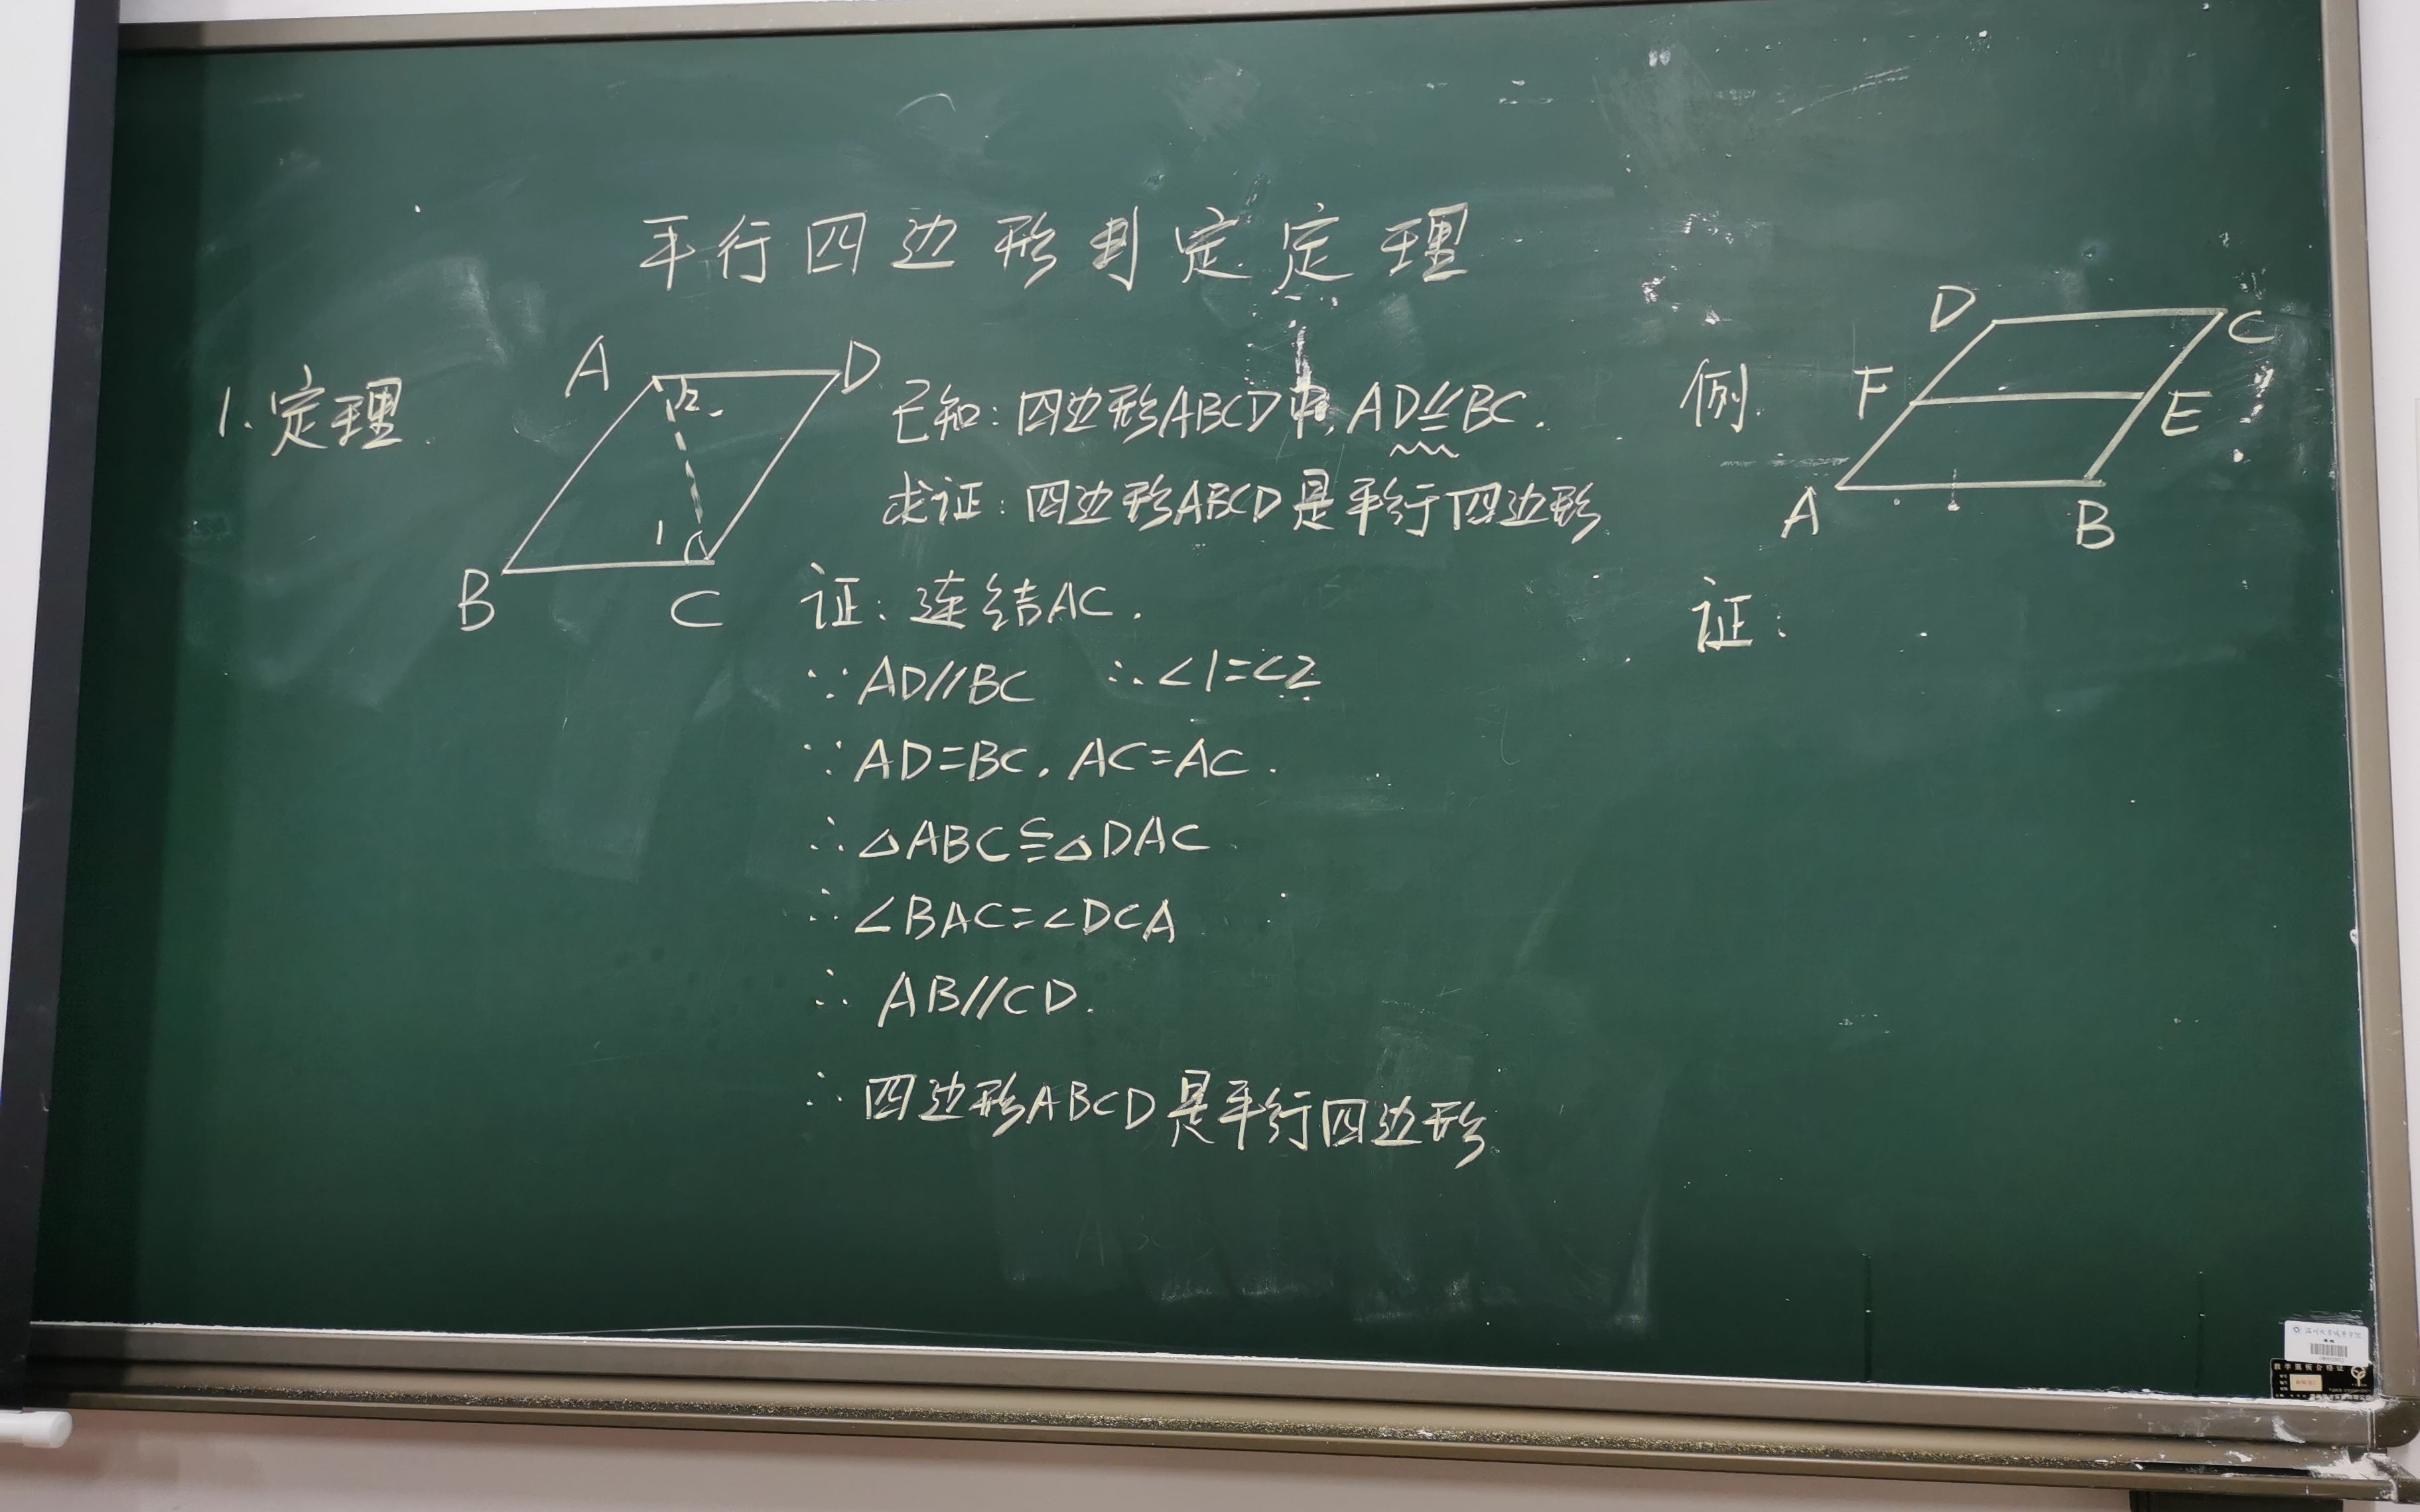 平行四边形判定定理
1.定理.
A
D
12
1
B
C
已知:四边形ABCD中,AD⫽=BC.
求证:四边形ABCD是平行四边形
证:连结AC.
∵AD//BC ∴∠1=∠2
∵AD=BC. AC=AC.
∴△ABC≌△DAC
∴∠BAC=∠DCA
∴AB//CD.
∴四边形ABCD是平行四边形
例.
D
C
F
E
A
B
证: